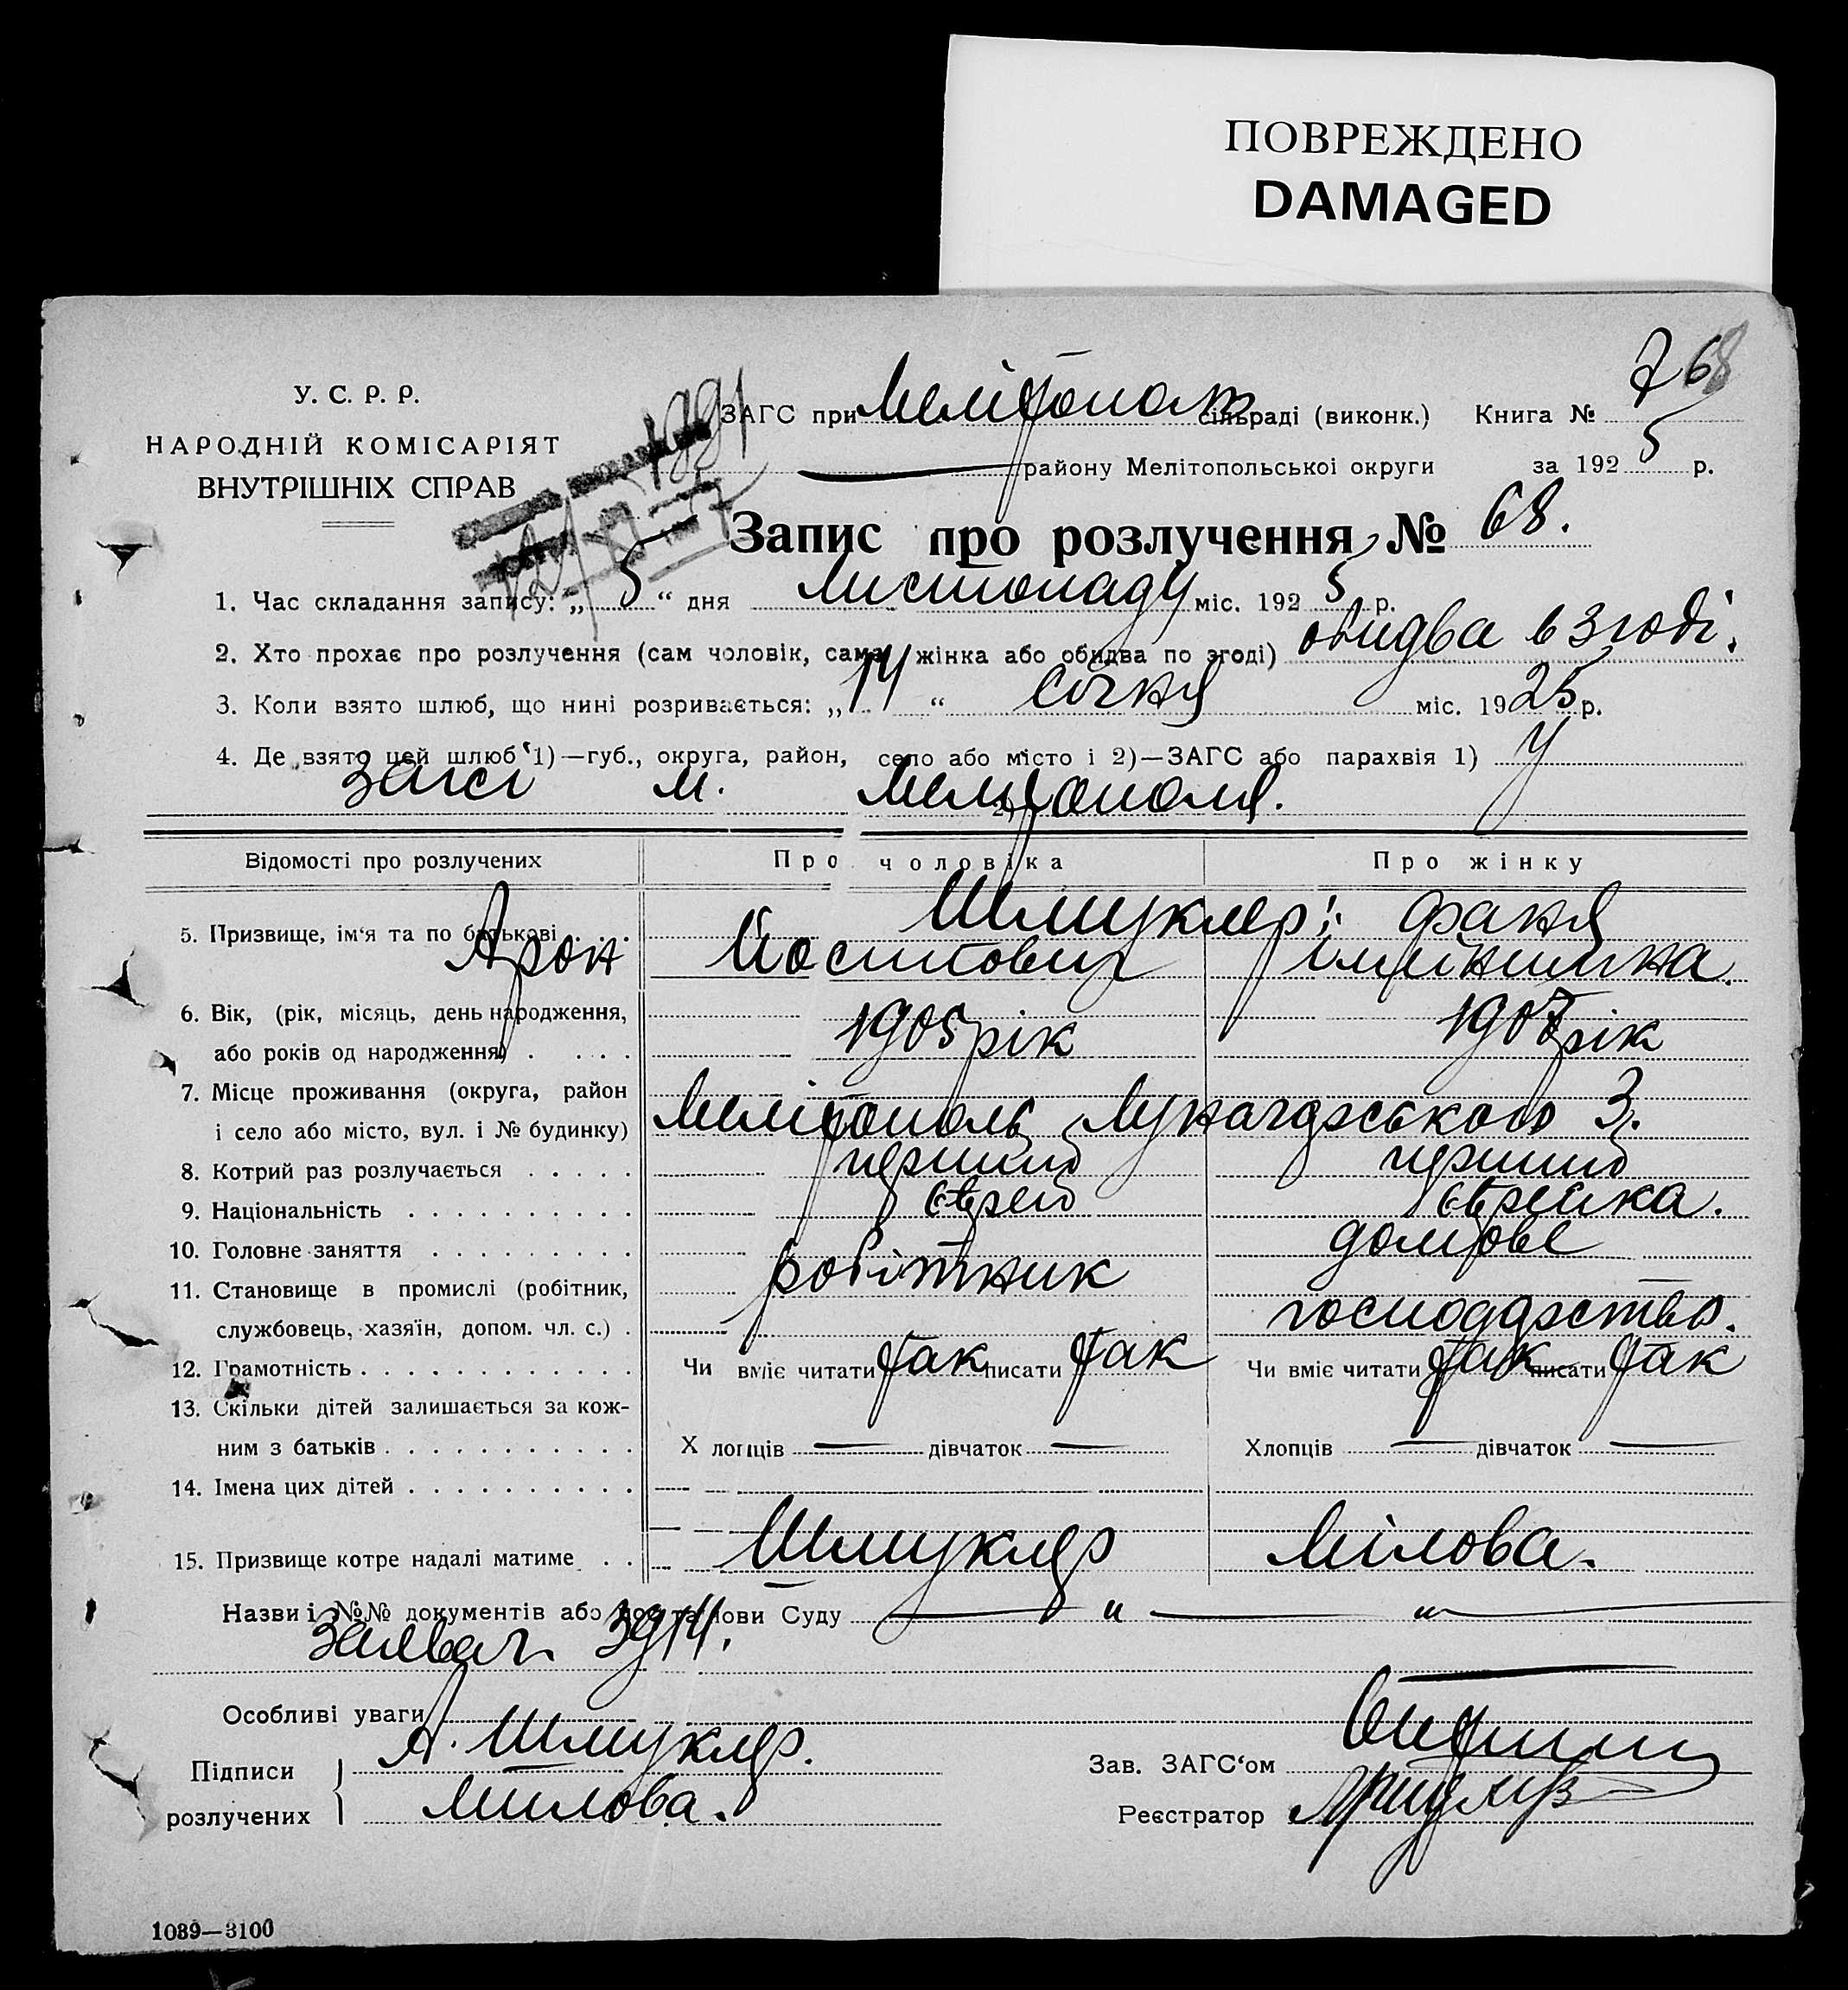 ПОВРЕЖДЕНО
DAMAGED
У. С. Р. Р.
НАРОДНІЙ КОМІСАРІЯТ
ВНУТРІШНІХ СПРАВ
ЗАГС при Мелітопол сільраді (виконк.) Книга №
району Мелітопольської округи за 1925 р.
Запис про розлучення № 68.
1. Час складання запису: „5“ дня листопаду міс. 1925 р.
2. Хто прохає про розлучення (сам чоловік, сама жінка або обидва по згоді) обидва в згоді.
3. Коли взято шлюб, що нині розривається: „14“ січня міс. 1925 р.
4. Де взято цей шлюб 1)—губ., округа, район, село або місто і 2)—ЗАГС або парахвія 1) У
Загсі м. 2) Мелітополя.
Відомості про розлучених Про чоловіка Про жінку
5. Призвище, ім‘я та по батькові Шмуклер: Фаня
Арон Йосипович
6. Вік, (рік, місяць, день народження, 1905 рік 1907 рік
або років од народження)
7. Місце проживання (округа, район
і село або місто, вул. і № будинку) Мелітополь Луначарського 3.
8. Котрий раз розлучається перший перший
9. Національність єврей єврейка.
10. Головне заняття домове
11. Становище в промислі (робітник, робітник
службовець, хазяїн, допом. чл. с.) господарство.
12. Грамотність Чи вміє читати так писати так Чи вміє читати так писати так
13. Скільки дітей залишається за кож-
ним з батьків Хлопців — дівчаток — Хлопців — дівчаток —
14. Імена цих дітей
15. Призвище котре надалі матиме Шмуклер Мілова.
Назви і №№ документів або постанови Суду — " — "
3914.
Особливі уваги
Підписи розлучених А. Шмуклер.
Мілова.
Зав. ЗАГС‘ом
Реєстратор
1089—3100